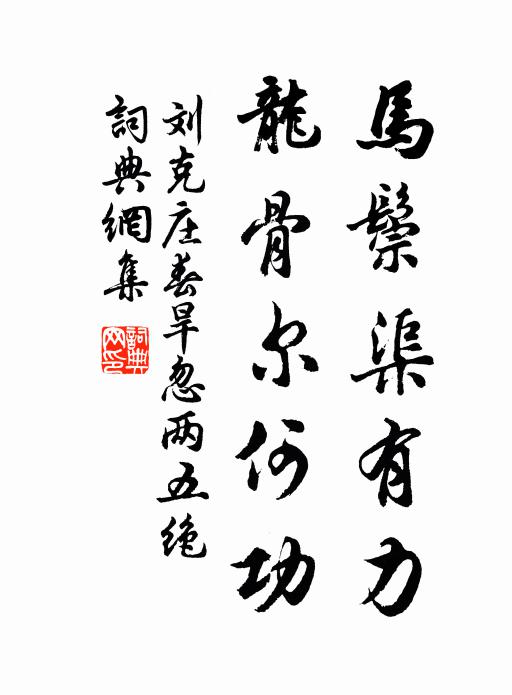 馬鬃渠有力
龍骨尔何功
刘克庄春旱忽两五绝
詞典網集
詞典网印